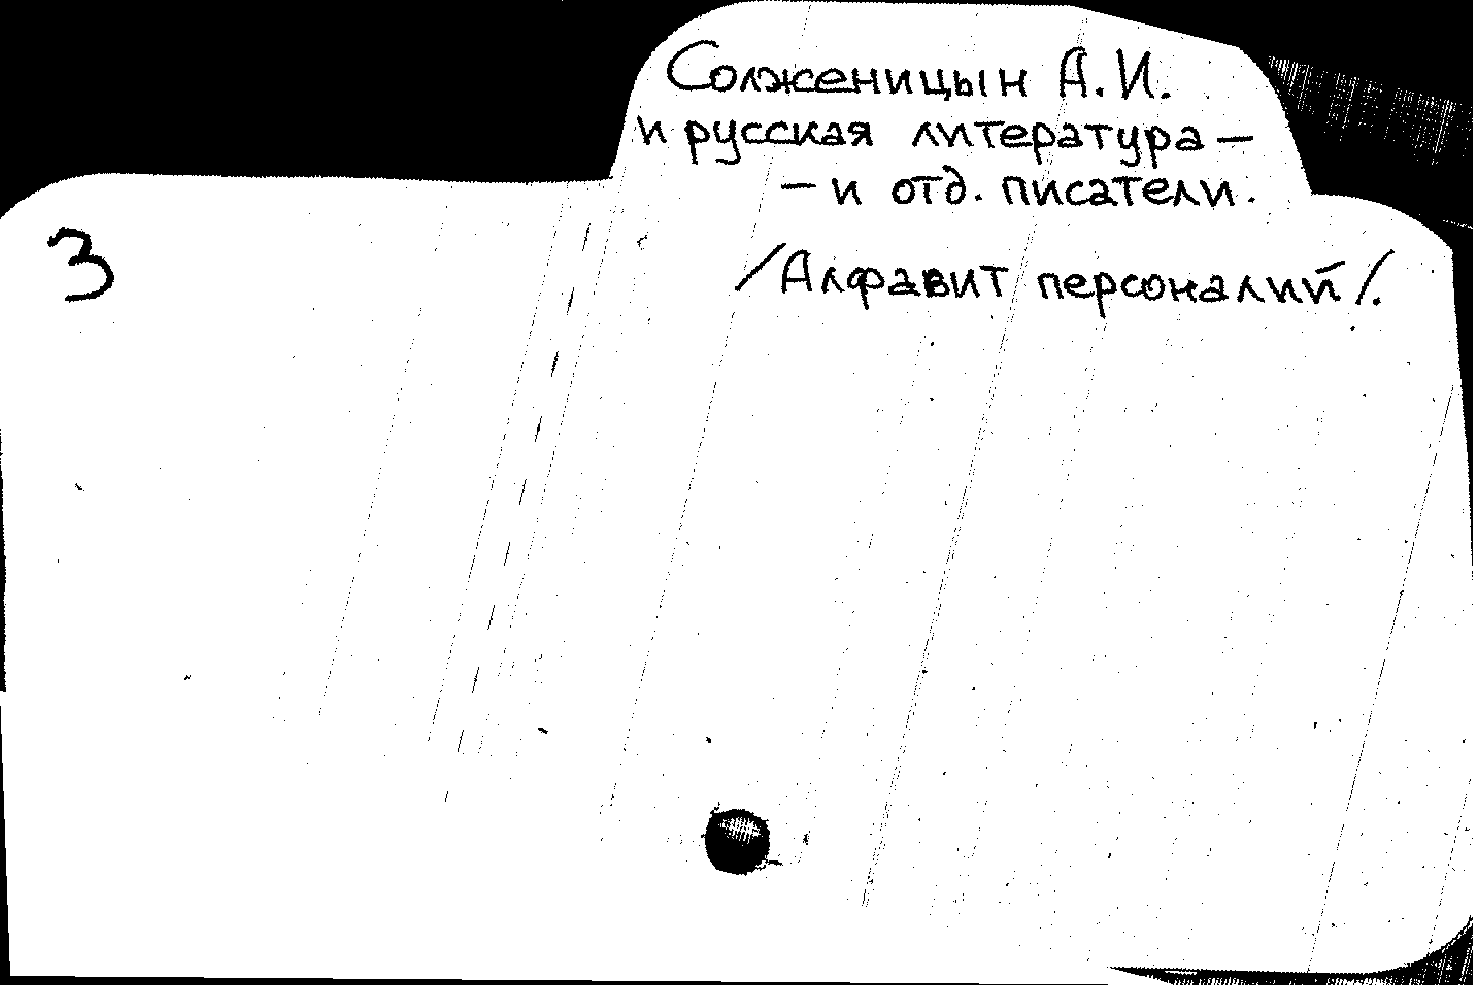 Солженицын А.И.
и русская литература –
– и отд. писатели.
/Алфавит персоналий/.
3